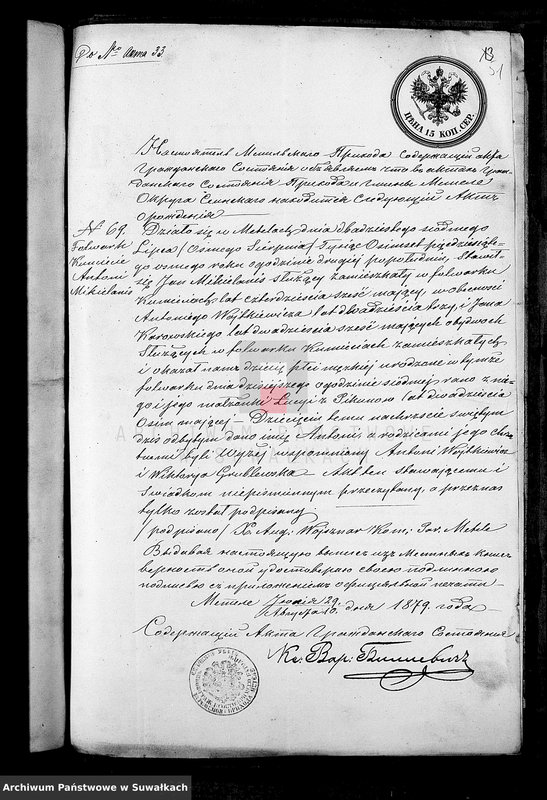 До № Акта 33
13
51
ЦѢНА 15 КОП. СЕР.
Настоятель Метельскаго Прихода Содержащій акта
Гражданскаго Состоянія объявляетъ что въ актахъ Граж-
данскаго Состоянія Прихода и гмины Метеле
Округа Сейнскаго находится следующій Актъ
о рожденіи
№ 69.
Folwark
Kuniecie
Antoni
Mikielanis
Działo się w Metelach, dnia dwudziestego siódmego
Lipca (Osmego Sierpnia) Tysiąc Osimset pięćdziesiąte-
go osmego roku o godzinie drugiej popołudniu, Stawił
się Jan Mikielanis służący zamieszkały w folwarku
Kunieciach, lat czterdzieścia sześć mający, w obecności
Antoniego Wojtkiewicza lat dwadzieścia trzy, i Jana
lat dwadzieścia sześć mających obydwóch
służących w folwarku Kunieciach zamieszkałych
i okazał nam dziecię płci męzkiej urodzone w tymże
folwarku dnia dzisiejszego o godzinie siódmej rano z nie-
go i jego małżonki Łucyi z lat dwadzieścia
Osim mającej. Dziecięciu temu na chrzcie świętym
dziś odbytym dano imię Antoni, a rodzicami jego chrze-
stnemi byli Wyżej wspomniany Antoni Wojtkiewicz
i Wiktorya Grublewska. Akt ten stawającemu i
świadkom niepiśmiennym przeczytany, a przez nas
tylko został podpisany
(podpisano) X. Aug: Wojsznar Kom: Par. Metele
Выдавая настоящую выпись изъ Метыльныхъ книгъ
верность оной удостоверяю своею подлинною
подписью съ приложеніемъ оффиціальной печати
Метеле Іюля 29.
Августа 10. дня 1879. года
Содержащій Акта Гражданскаго Состоянія
Кс. Вар:
Archiwum Państwowe w Suwałkach